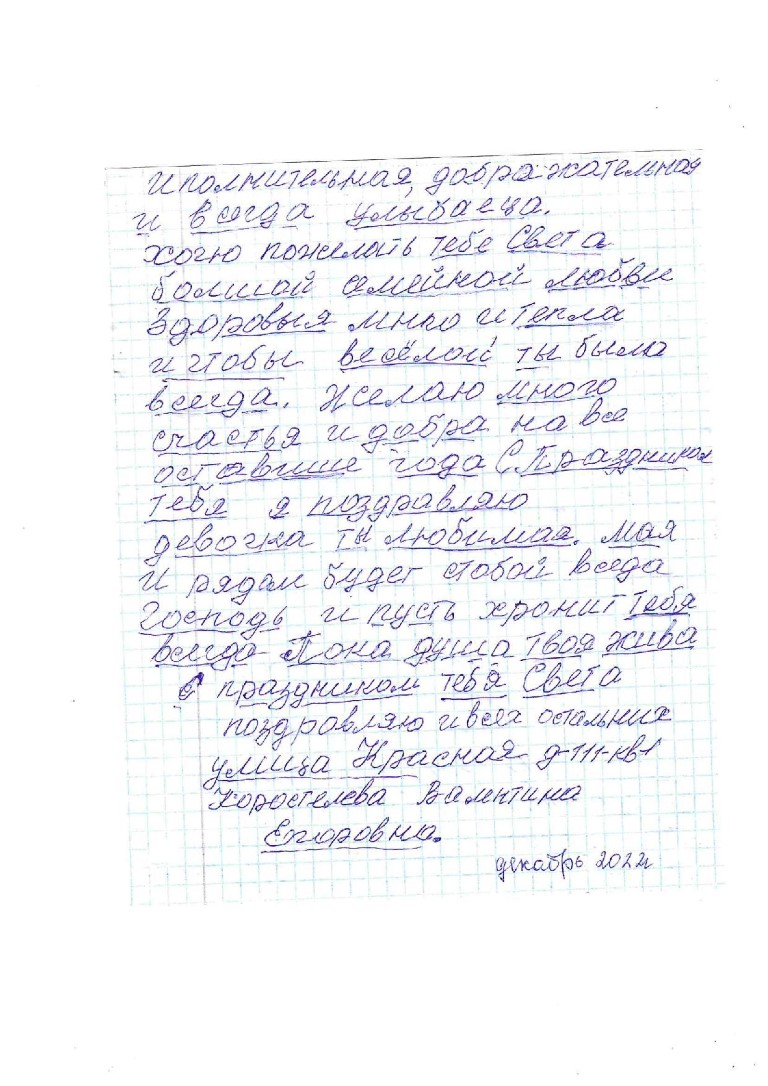 Иполнительная, дображательная
и всегда улыбаеца.
хочю пожелать тебе Света
болшой семейной любви
Здоровья мнго и тепла
и чтобы весёлой ты была
всегда. Желаю много
счастья и добра на все
оставшие года С Праздником
тебя я поздравляю
девочка ты любимая. мая
И рядом будет стобой всегда
Господь и пусть хронит тебя
всегда Пока душа твоя жива
С праздником тебя Света
поздровляю и всех остальних
улица Красная д-111-кв1
Коростелева Валентина
Егоровна.
декабрь 2022г